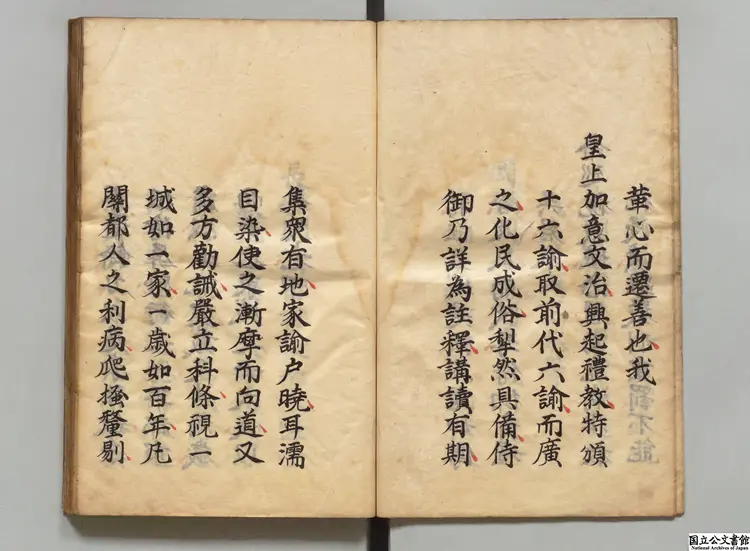 革心而遷善也我
皇上加意文治興起禮教特頒
十六諭取前代六諭而廣
之化民成俗犁然具備侍
御乃詳為註釋講讀有期
集眾有地家諭户曉耳濡
目染使之漸摩而向道又
多方勸誡嚴立科條視一
城如一家一歲如百年凡
關都人之利病爬搔釐剔
国立公文書館
National Archives of Japan